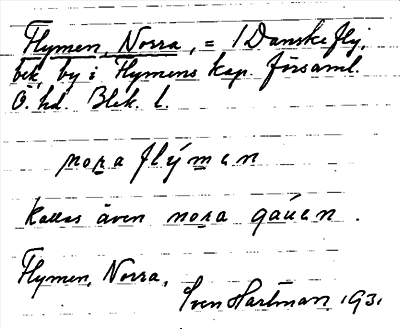 Flymen, Norra, = / Danskefly,
bek. by i Flymens kap. församl.
Ö. hd. Blek. l.
nora flýmen
Kallas även nora gáuen.
Flymen, Norra,
Sven Hartman. 1931